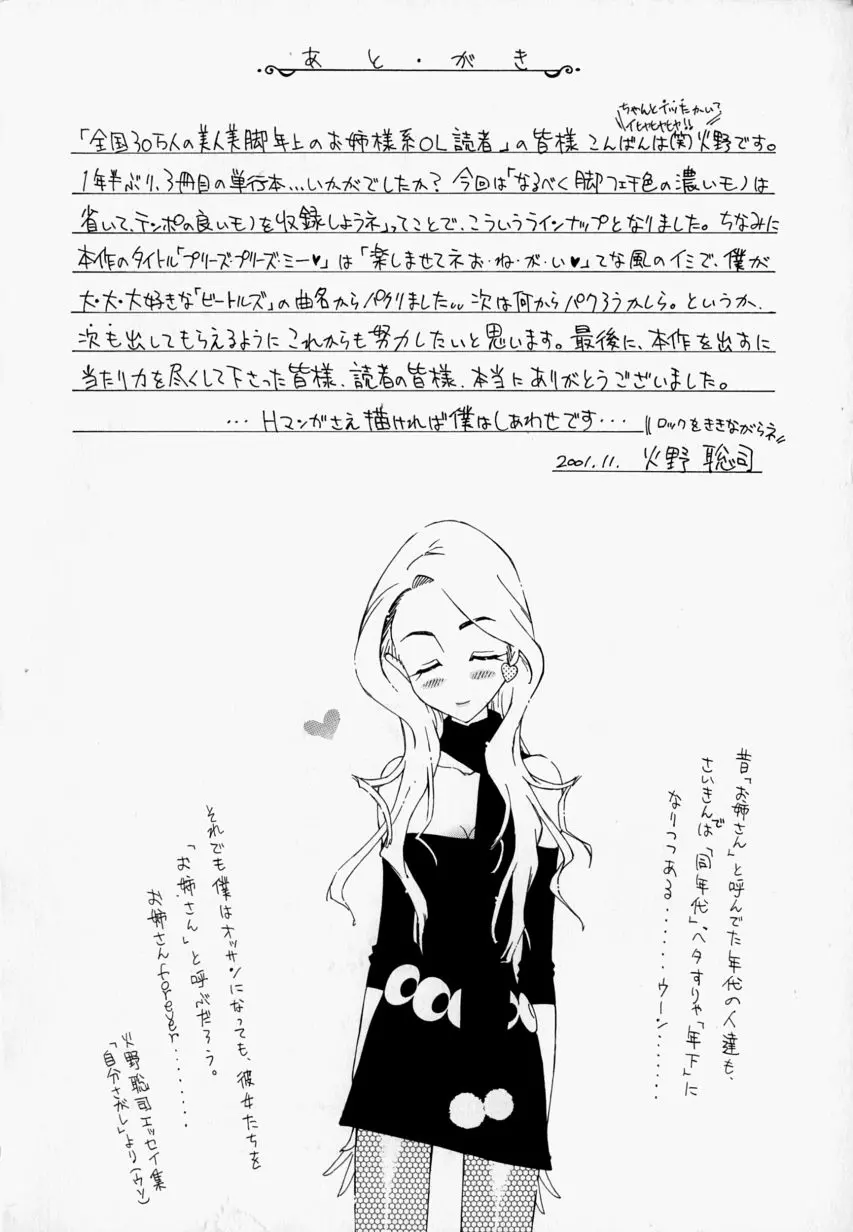 あと・がき
ちゃんとボッたかい？
イヒャヒャヒャ!!
「全国30万人の美人美脚年上のお姉様系OL読者」の皆様 こんばんは(笑)火野です。
1年半ぶり、3冊目の単行本…いかがでしたか？ 今回は「なるべく脚フェチ色の濃いモノは
省いて、テンポの良いモノを収録しようネ」ってことで、こういうラインナップとなりました。ちなみに
本作のタイトル「プリーズ・プリーズ・ミー♥」は「楽しませてネお・ね・が・い♥」てな風のイミで、僕が
大・大・大好きな「ビートルズ」の曲名からパクりました。次は何からパクろうかしら。というか、
次も出してもらえるように これからも努力したいと思います。最後に、本作を出すに
当たり力を尽くして下さった皆様、読者の皆様、本当にありがとうございました。
…Hマンガさえ描ければ僕はしあわせです…
〃ロックをききながらネ〃
2001.11. 火野 聡司
昔「お姉さん」と呼んでた年代の人達も、
さいきんでは「同年代」、ヘタすりゃ「年下」に
なりつつある……ウーン……
それでも僕はオッサンになっても、彼女たちを
「お姉さん」と呼ぶだろう。
お姉さんforever………
火野聡司エッセイ集
「自分さがし」より(ウソ)